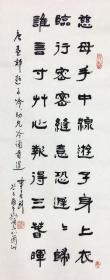 慈母手中線遊子身上衣
臨行密密縫意恐遲遲歸
誰言寸艸心報得三春暉
唐孟郊遊子吟幼兒吟誦首選